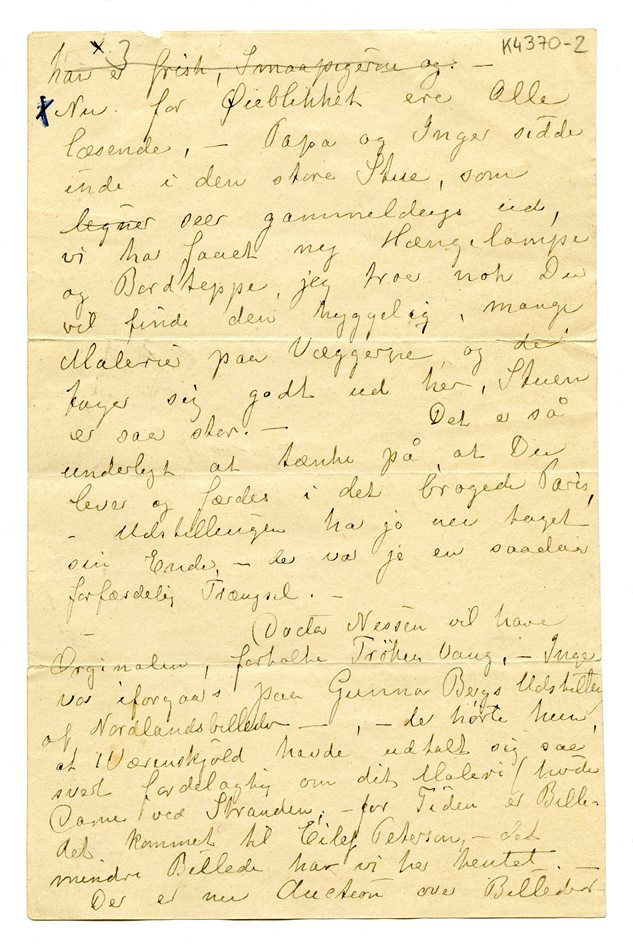 K4370-2
x 3
han er frisk, Smaapigerne og. —
x Nu for Øieblikket ere Alle
læsende, — Papa og Inger sidde
inde i den store Stue, som
ligner seer gammeldags ud,
vi ha faaet ny Hængelampe
og Bordteppe, jeg troer nok Du
vil finde den hyggelig, mange
Malerier paa Væggerne og de
tager sig godt ud her, Stuen
er saa stor. — Det er så
underligt at tænke på at Du
lever og færdes i det brogede Paris,
– Udstillingen ha jo nu taget
sin Ende, – der var jo en saadan
forfærdelig Trængsel. —
(Doctor Nessen vil have
Orginalen, fortalte Frøken Vang, – Inger
var iforgaars paa Gunnar Bergs Udstilling
af Nordlandsbilleder —, – der hørte hun,
at Wærenskjold havde udtalt sig saa
svært fordelagtig om dit Maleri (hvide
Dame ved Stranden, – for Tiden er Bille-
det kommet til Eilef Peterson, – det
mindre Billede har vi her hentet. —
Der er nu Auction over Billeder-